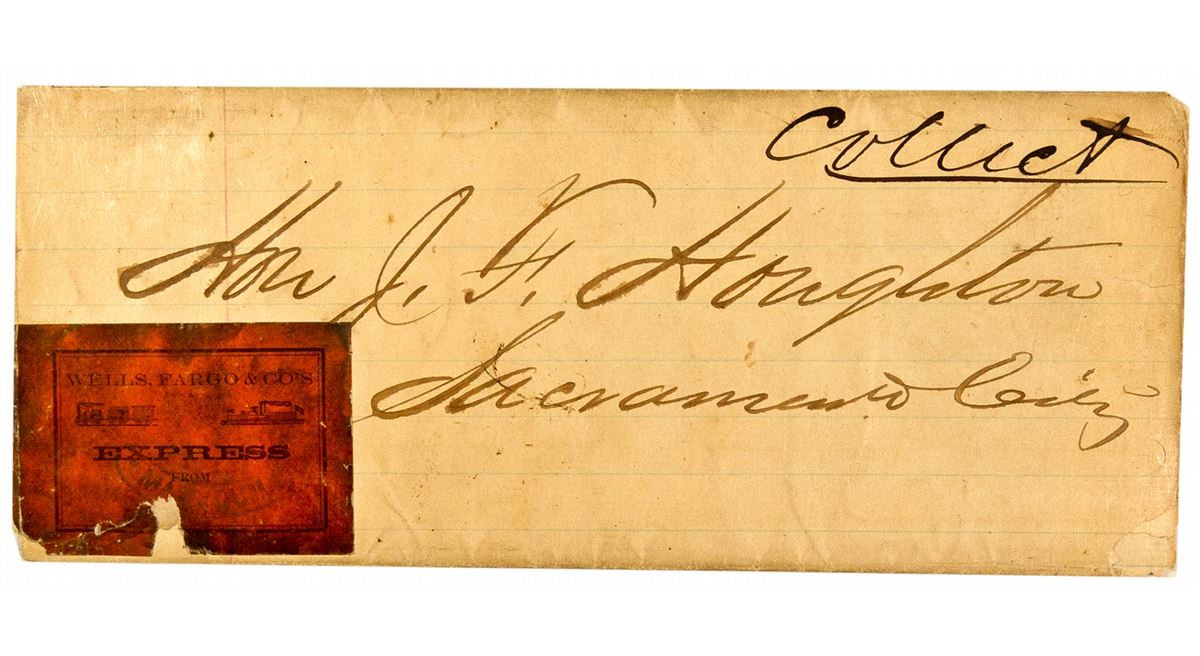 Collect
Hon J. F. Houghton
Sacramento City
WELLS, FARGO & CO'S
EXPRESS
FROM